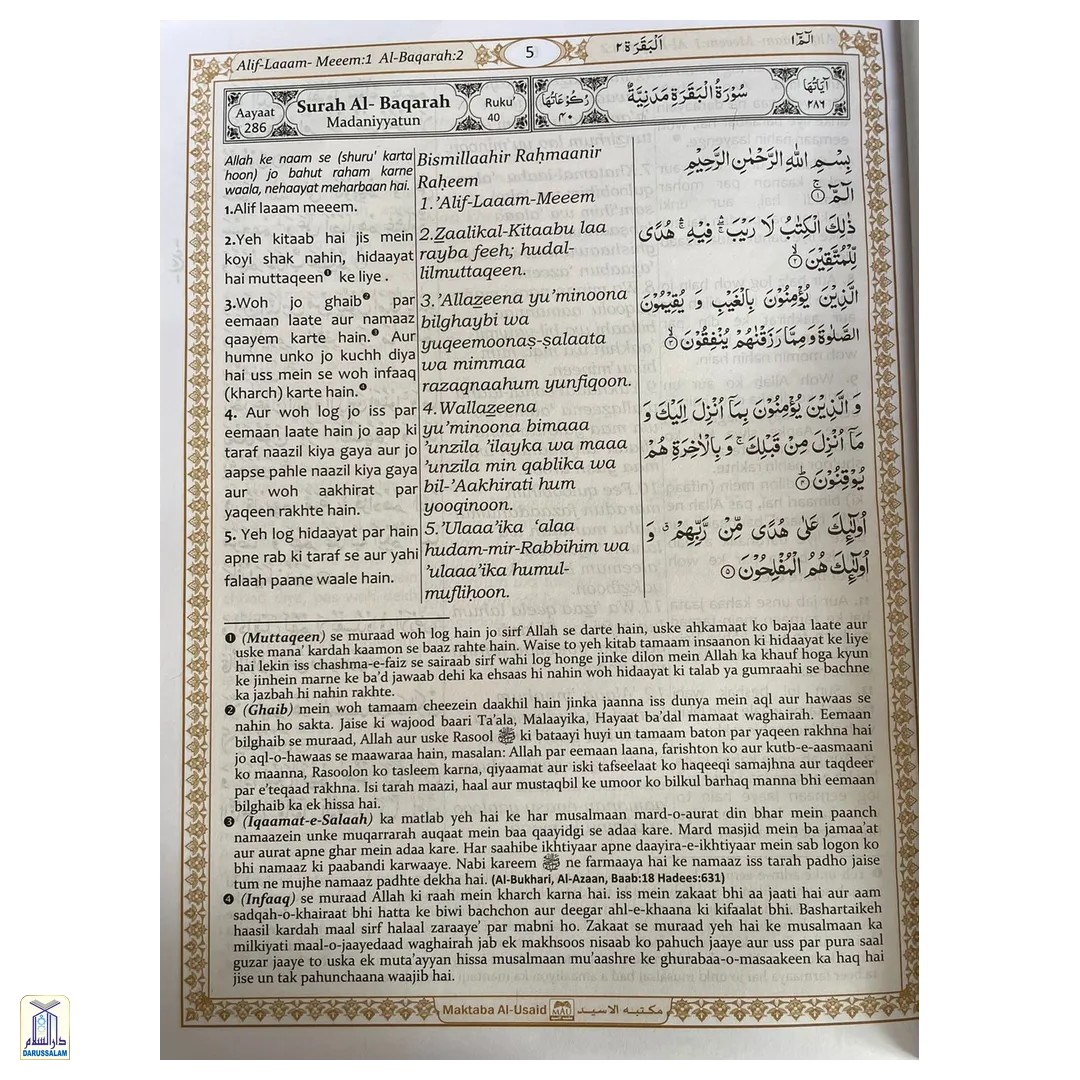 Alif-Laaam- Meeem:1 Al-Baqarah:2
5
اَلْبَقَرَة ٢
الٓمّٓ ١
Aayaat
286
Surah Al- Baqarah
Madaniyyatun
Ruku'
40
رُكُوْعَاتُهَا
٤٠
سُوْرَةُ الْبَقَرَةِ مَدَنِيَّةٌ
اٰيَاتُهَا
٢٨٦
Allah ke naam se (shuru' karta
hoon) jo bahut raham karne
waala, nehaayat meharbaan hai.
1.Alif laaam meeem.
2.Yeh kitaab hai jis mein
koyi shak nahin, hidaayat
hai muttaqeen❶ ke liye .
3.Woh jo ghaib❷ par
eemaan laate aur namaaz
qaayem karte hain.❸ Aur
humne unko jo kuchh diya
hai uss mein se woh infaaq
(kharch) karte hain.❹
4. Aur woh log jo iss par
eemaan laate hain jo aap ki
taraf naazil kiya gaya aur jo
aapse pahle naazil kiya gaya
aur woh aakhirat par
yaqeen rakhte hain.
5. Yeh log hidaayat par hain
apne rab ki taraf se aur yahi
falaah paane waale hain.
Bismillaahir Raḥmaanir
Raḥeem
1.’Alif-Laaam-Meeem
2.Zaalikal-Kitaabu laa
rayba feeh; hudal-
lilmuttaqeen.
3.’Allazeena yu’minoona
bilghaybi wa
yuqeemoonaṣ-ṣalaata
wa mimmaa
razaqnaahum yunfiqoon.
4.Wallazeena
yu’minoona bimaaa
’unzila ’ilayka wa maaa
’unzila min qablika wa
bil-’Aakhirati hum
yooqinoon.
5.’Ulaaa’ika ‘alaa
hudam-mir-Rabbihim wa
’ulaaa’ika humul-
mufliḥoon.
بِسْمِ اللّٰهِ الرَّحْمٰنِ الرَّحِيْمِ
الٓمّٓ ۚ ١
ذٰلِكَ الْكِتٰبُ لَا رَيْبَ ۛۚ فِيْهِ ۛۚ هُدًى
لِّلْمُتَّقِيْنَ ۙ ٢
الَّذِيْنَ يُؤْمِنُوْنَ بِالْغَيْبِ وَ يُقِيْمُوْنَ
الصَّلٰوةَ وَ مِمَّا رَزَقْنٰهُمْ يُنْفِقُوْنَ ۙ ٣
وَ الَّذِيْنَ يُؤْمِنُوْنَ بِمَآ اُنْزِلَ اِلَيْكَ وَ
مَآ اُنْزِلَ مِنْ قَبْلِكَ ۚ وَ بِالْاٰخِرَةِ هُمْ
يُوْقِنُوْنَ ؕ ٤
اُولٰٓئِكَ عَلٰى هُدًى مِّنْ رَّبِّهِمْ ۗ وَ
اُولٰٓئِكَ هُمُ الْمُفْلِحُوْنَ ٥
❶ (Muttaqeen) se muraad woh log hain jo sirf Allah se darte hain, uske ahkamaat ko bajaa laate aur
uske mana’ kardah kaamon se baaz rahte hain. Waise to yeh kitab tamaam insaanon ki hidaayat ke liye
hai lekin iss chashma-e-faiz se sairaab sirf wahi log honge jinke dilon mein Allah ka khauf hoga kyun
ke jinhein marne ke ba’d jawaab dehi ka ehsaas hi nahin woh hidaayat ki talab ya gumraahi se bachne
ka jazbah hi nahin rakhte.
❷ (Ghaib) mein woh tamaam cheezein daakhil hain jinka jaanna iss dunya mein aql aur hawaas se
nahin ho sakta. Jaise ki wajood baari Ta’ala, Malaayika, Hayaat ba’dal mamaat waghairah. Eemaan
bilghaib se muraad, Allah aur uske Rasool ﷺ ki bataayi huyi un tamaam baton par yaqeen rakhna hai
jo aql-o-hawaas se maawaraa hain, masalan: Allah par eemaan laana, farishton ko aur kutb-e-aasmaani
ko maanna, Rasoolon ko tasleem karna, qiyaamat aur iski tafseelaat ko haqeeqi samajhna aur taqdeer
par e’teqaad rakhna. Isi tarah maazi, haal aur mustaqbil ke umoor ko bilkul barhaq manna bhi eemaan
bilghaib ka ek hissa hai.
❸ (Iqaamat-e-Salaah) ka matlab yeh hai ke har musalmaan mard-o-aurat din bhar mein paanch
namaazein unke muqarrarah auqaat mein baa qaayidgi se adaa kare. Mard masjid mein ba jamaa’at
aur aurat apne ghar mein adaa kare. Har saahibe ikhtiyaar apne daayira-e-ikhtiyaar mein sab logon ko
bhi namaaz ki paabandi karwaaye. Nabi kareem ﷺ ne farmaaya hai ke namaaz iss tarah padho jaise
tum ne mujhe namaaz padhte dekha hai. (Al-Bukhari, Al-Azaan, Baab:18 Hadees:631)
❹ (Infaaq) se muraad Allah ki raah mein kharch karna hai. iss mein zakaat bhi aa jaati hai aur aam
sadqah-o-khairaat bhi hatta ke biwi bachchon aur deegar ahl-e-khaana ki kifaalat bhi. Bashartaikeh
haasil kardah maal sirf halaal zaraaye’ par mabni ho. Zakaat se muraad yeh hai ke musalmaan ka
milkiyati maal-o-jaayedaad waghairah jab ek makhsoos nisaab ko pahuch jaaye aur uss par pura saal
guzar jaaye to uska ek muta’ayyan hissa musalmaan mu’aashre ke ghurabaa-o-masaakeen ka haq hai
jise un tak pahunchaana waajib hai.
Maktaba Al-Usaid MAU مكتبه الاسيد
دارالسلام
DARUSSALAM